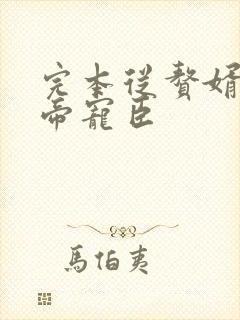 完本従赘婿
帝寵臣
馬伯夷